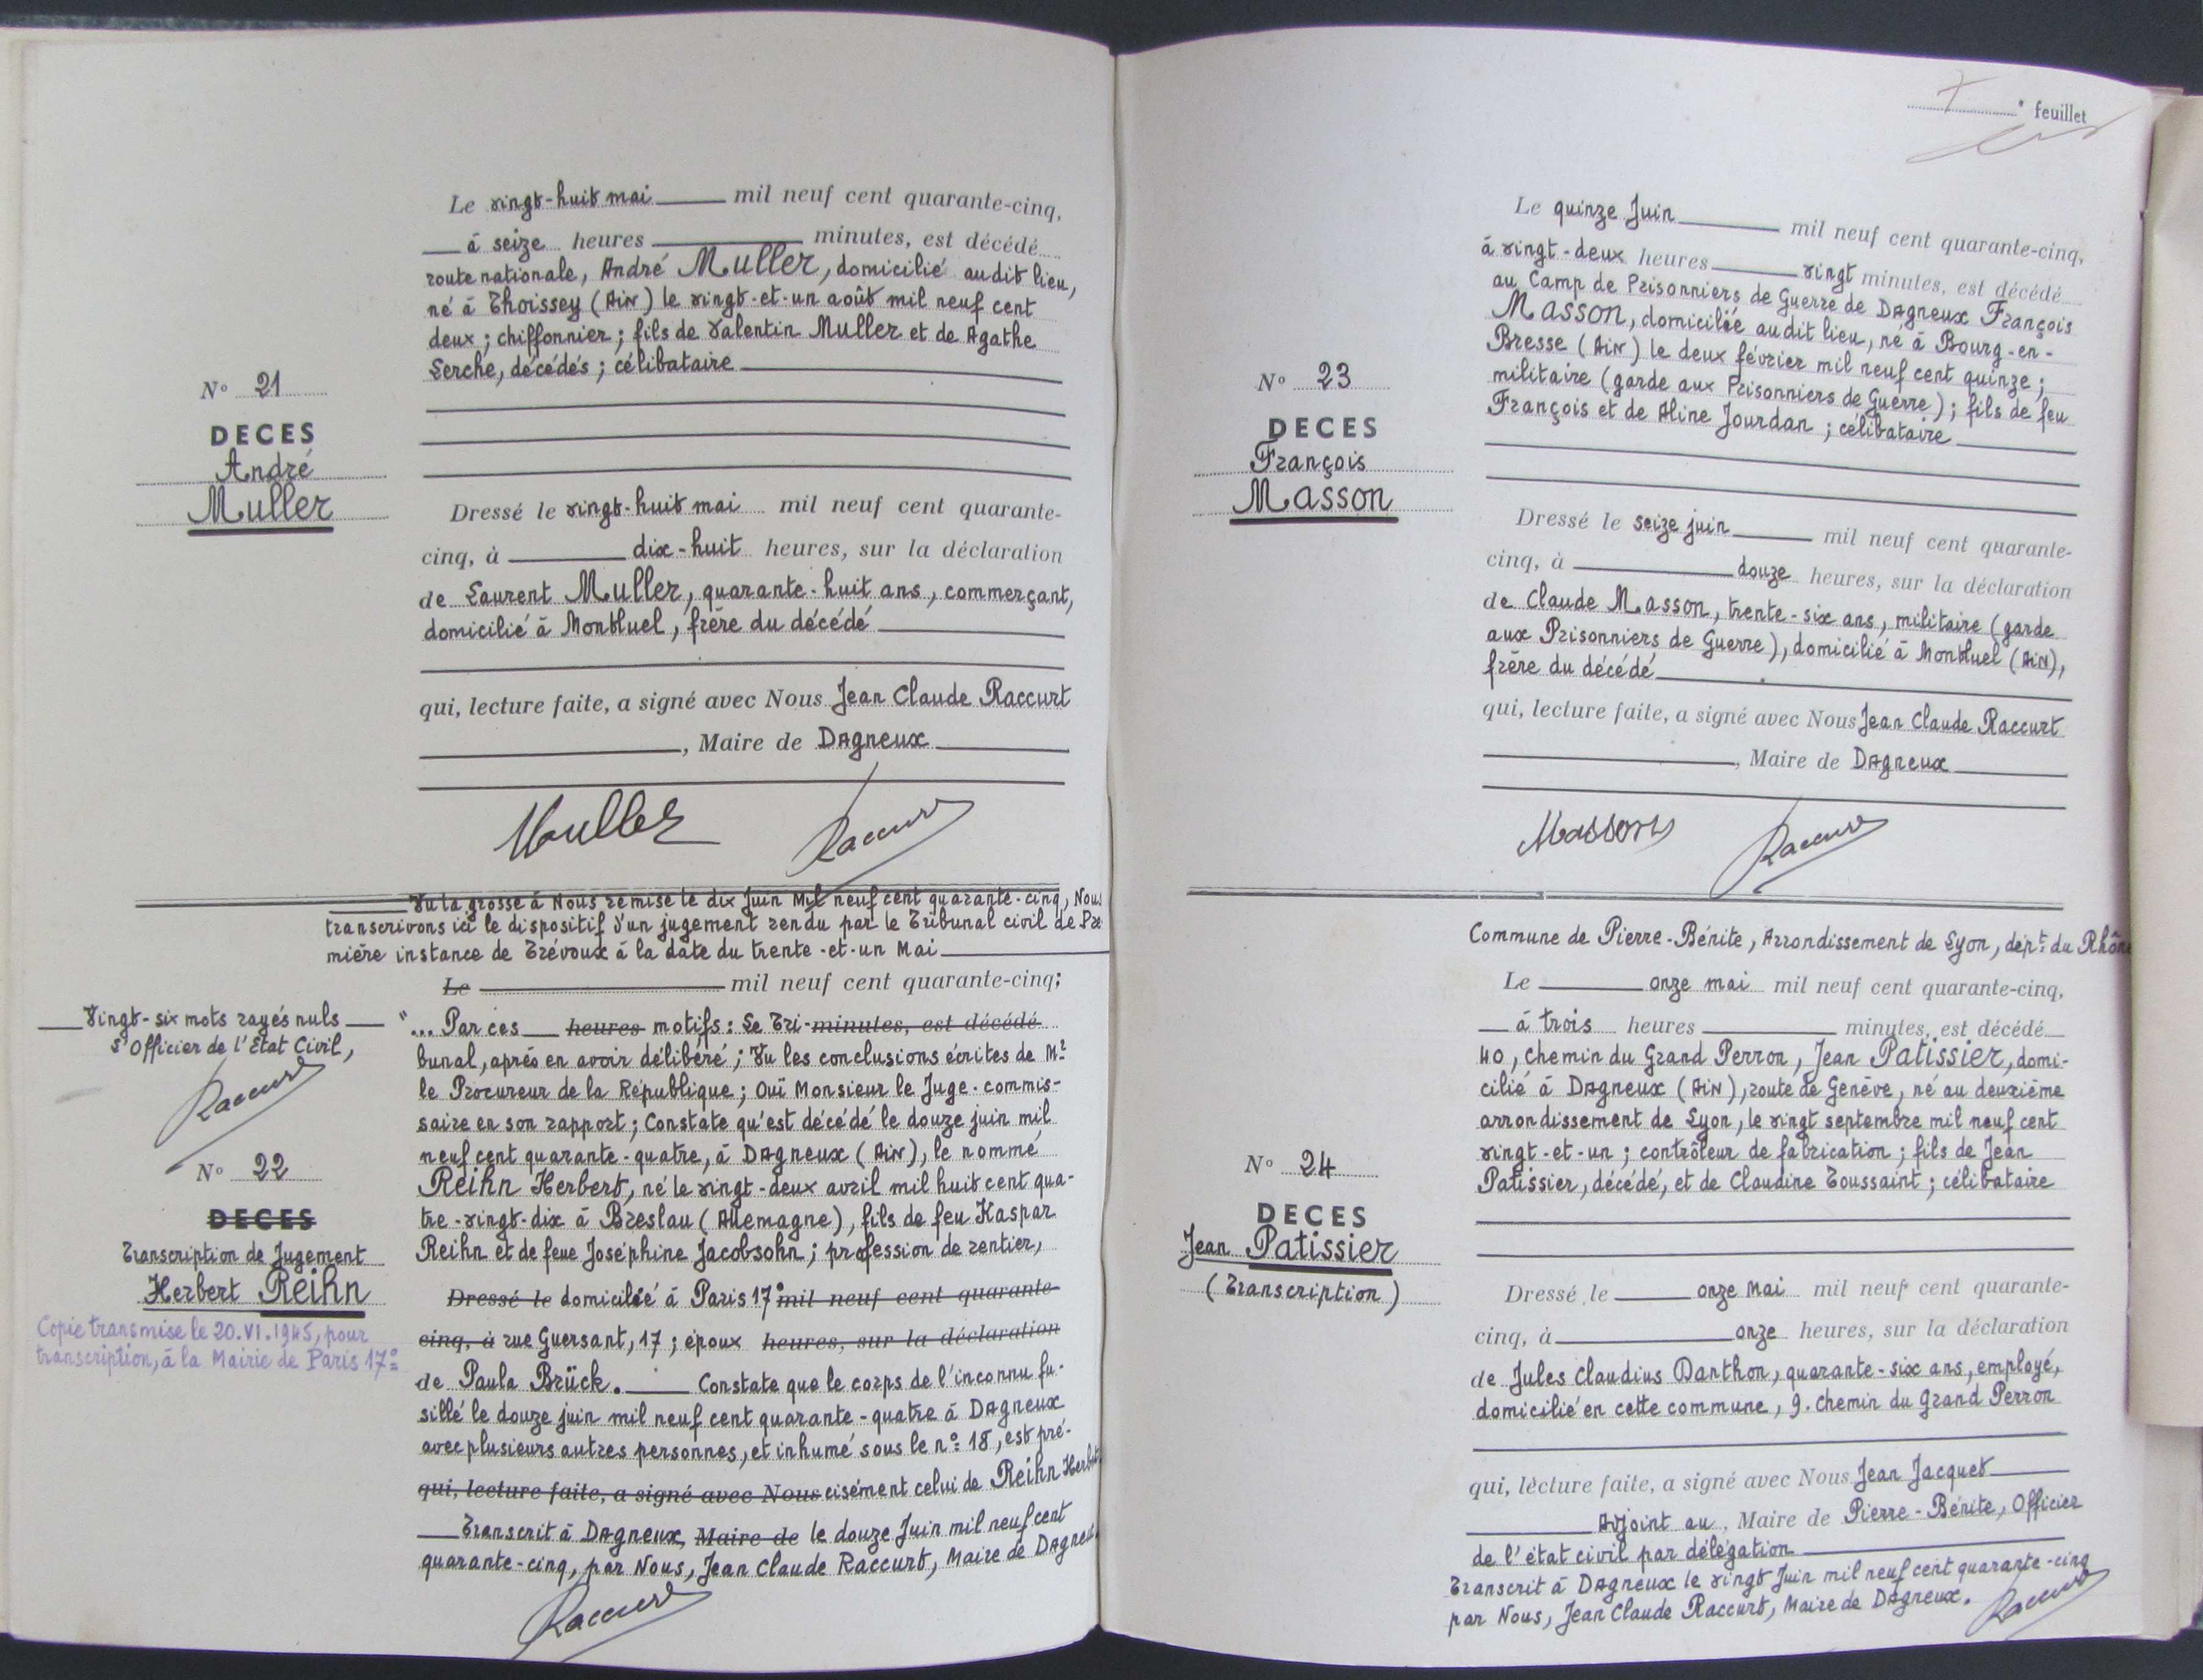 Le vingt-huit mai mil neuf cent quarante-cinq,
à seize heures minutes, est décédé
route nationale, André Muller, domicilié audit lieu,
né à Thoissey (Ain) le vingt-et-un août mil neuf cent
deux ; chiffonnier ; fils de Valentin Muller et de Agathe
Lerché, décédés ; célibataire
N° 21
DECES
André
Muller
Dressé le vingt-huit mai mil neuf cent quarante-
cinq, à dix-huit heures, sur la déclaration
de Laurent Muller, quarante-huit ans, commerçant,
domicilié à Montluel, frère du décédé
qui, lecture faite, a signé avec Nous Jean Claude Raccurt
, Maire de Dagneux
Muller Raccurt
Vu la grosse à Nous remise le dix Juin Mil neuf cent quarante-cinq, Nous
transcrivons ici le dispositif d'un jugement rendu par le Tribunal civil de Pre
mière instance de Trévoux à la date du trente-et-un Mai
Le mil neuf cent quarante-cinq;
Vingt-six mots rayés nuls
L'Officier de l'Etat Civil,
Raccurt
N° 22
DECES
Transcription de Jugement
Herbert Reihn
Copie transmise le 20.VI.1945, pour
transcription, à la Mairie de Paris 17e
"... Par ces heures motifs : Le Tri- minutes, est décédé
bunal, après en avoir délibéré ; Vu les conclusions écrites de Mr
le Procureur de la République ; Ouï Monsieur le Juge-commis-
saire en son rapport ; Constate qu'est décédé le douze juin mil
neuf cent quarante-quatre, à Dagneux (Ain), le nommé
Reihn Herbert, né le vingt-deux avril mil huit cent qua-
tre-vingt-dix à Breslau (Allemagne), fils de feu Kaspar
Reihn et de feue Joséphine Jacobsohn ; profession de rentier,
Dressé le domicilié à Paris 17e mil neuf cent quarante
cinq, à rue Guersant, 17 ; époux heures, sur la déclaration
de Paula Brück. Constate que le corps de l'inconnu fu-
sillé le douze juin mil neuf cent quarante-quatre à Dagneux
avec plusieurs autres personnes, et inhumé sous le n° 18, est pré-
qui, lecture faite, a signé avec Nous cisément celui de Reihn Herbert
Transcrit à Dagneux, Maire de le douze Juin mil neuf cent
quarante-cinq, par Nous, Jean Claude Raccurt, Maire de Dagneux
Raccurt
7 e feuillet
Le quinze Juin mil neuf cent quarante-cinq,
à vingt-deux heures vingt minutes, est décédé
au Camp de Prisonniers de Guerre de Dagneux François
Masson, domicilié audit lieu, né à Bourg-en-
Bresse (Ain) le deux février mil neuf cent quinze ;
militaire (garde aux Prisonniers de Guerre) ; fils de feu
François et de Aline Jourdan ; célibataire
N° 23
DECES
François
Masson
Dressé le seize juin mil neuf cent quarante-
cinq, à douze heures, sur la déclaration
de Claude Masson, trente-six ans, militaire (garde
aux Prisonniers de Guerre), domicilié à Montluel (Ain),
frère du décédé
qui, lecture faite, a signé avec Nous Jean Claude Raccurt
, Maire de Dagneux
Masson Raccurt
Commune de Pierre-Bénite, Arrondissement de Lyon, dépt du Rhône
Le onze mai mil neuf cent quarante-cinq,
à trois heures minutes, est décédé
40, chemin du Grand Perron, Jean Patissier, domi-
cilié à Dagneux (Ain), route de Genève, né au deuxième
arrondissement de Lyon, le vingt septembre mil neuf cent
vingt-et-un ; contrôleur de fabrication ; fils de Jean
Patissier, décédé, et de Claudine Toussaint ; célibataire
N° 24
DECES
Jean Patissier
(Transcription)
Dressé le onze Mai mil neuf cent quarante-
cinq, à onze heures, sur la déclaration
de Jules Claudius Danthon, quarante-six ans, employé,
domicilié en cette commune, 9. chemin du Grand Perron
qui, lecture faite, a signé avec Nous Jean Jacquet
Adjoint au, Maire de Pierre-Bénite, Officier
de l'état civil par délégation
Transcrit à Dagneux le vingt Juin mil neuf cent quarante-cinq
par Nous, Jean Claude Raccurt, Maire de Dagneux.
Raccurt